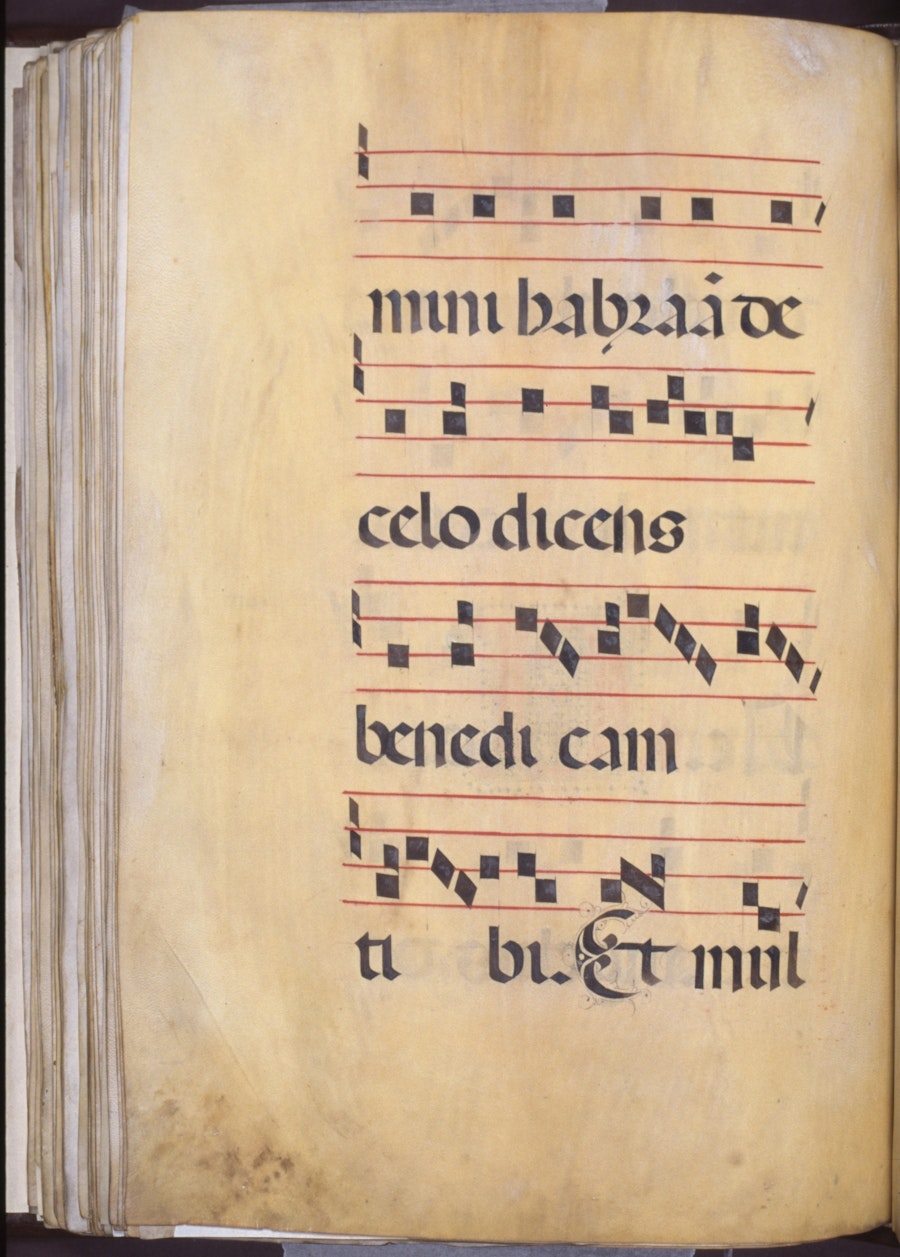 mini habraã de
celo dicens
benedi cam
ti bi. Et mul